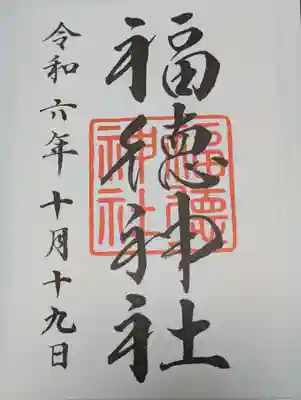 福徳神社
令和六年十月十九日
福徳
神社